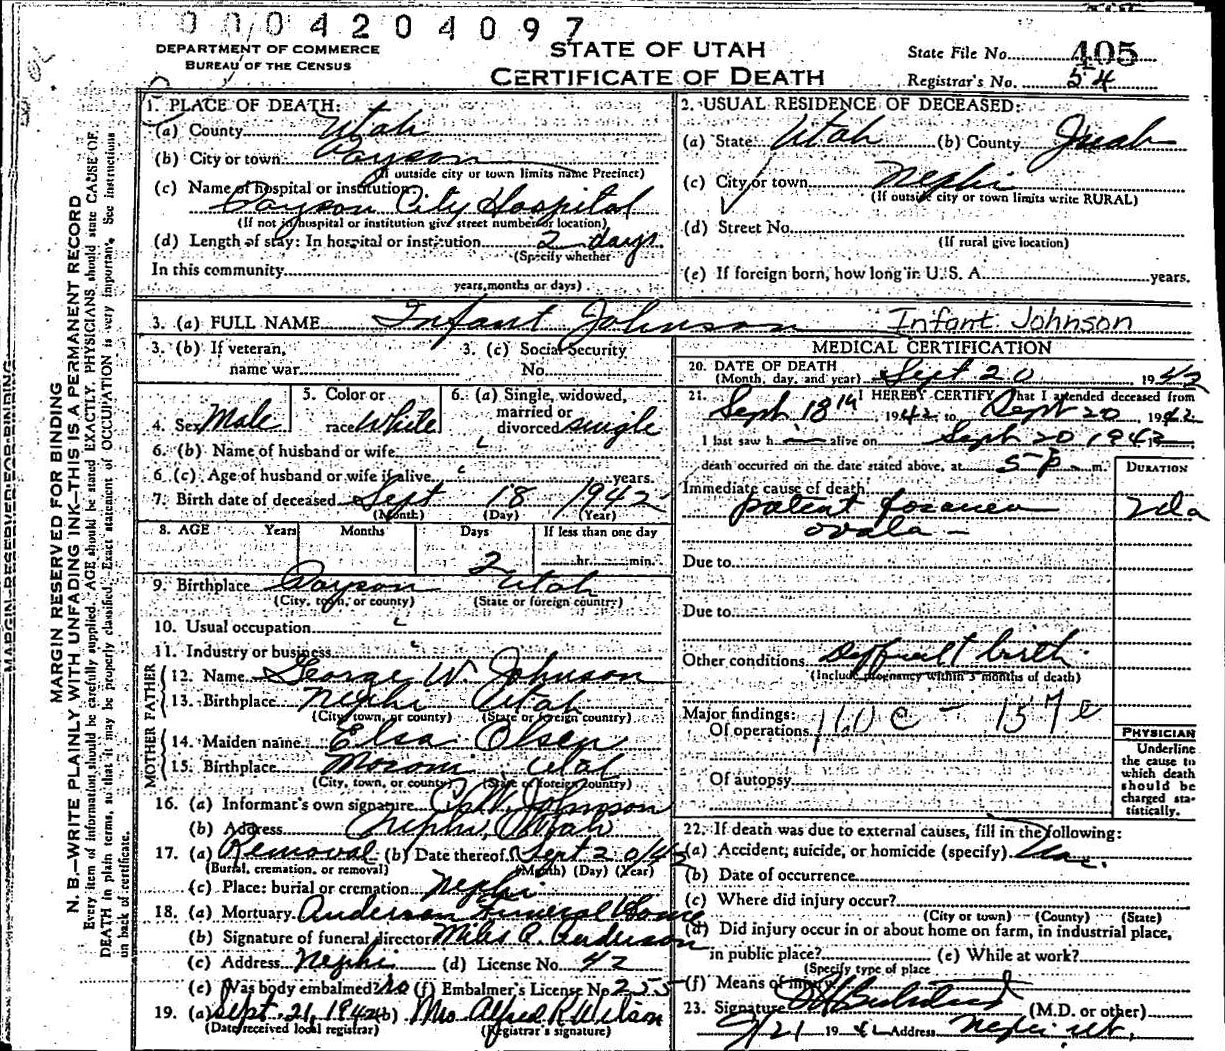 0004204097
DEPARTMENT OF COMMERCE
BUREAU OF THE CENSUS
STATE OF UTAH
CERTIFICATE OF DEATH
State File No. 405
Registrar's No. 54
MARGIN RESERVED FOR BINDING
MARGIN RESERVED FOR BINDING
N. B.—WRITE PLAINLY WITH UNFADING INK—THIS IS A PERMANENT RECORD
Every item of information should be carefully supplied. AGE should be stated EXACTLY. PHYSICIANS should state CAUSE OF
DEATH in plain terms, so that it may be properly classified. Exact statement of OCCUPATION is very important. See instructions
on back of certificate.
1. PLACE OF DEATH:
(a) County Utah
(b) City or town Payson
(If outside city or town limits name Precinct)
(c) Name of hospital or institution:
Payson City Hospital
(If not in hospital or institution give street number or location)
(d) Length of stay: In hospital or institution 2 days
(Specify whether
In this community
years, months or days)
2. USUAL RESIDENCE OF DECEASED:
(a) State Utah (b) County Juab
(c) City or town Nephi
(If outside city or town limits write RURAL)
(d) Street No.
(If rural give location)
(e) If foreign born, how long in U. S. A. years.
3. (a) FULL NAME Infant Johnson Infant Johnson
3. (b) If veteran, name war
3. (c) Social Security No.
4. Sex Male
5. Color or race White
6. (a) Single, widowed, married or divorced single
6. (b) Name of husband or wife
6 (c) Age of husband or wife if alive years
7. Birth date of deceased Sept 18 1942
(Month) (Day) (Year)
8. AGE Years Months Days If less than one day
2 hr. min.
9. Birthplace Payson Utah
(City, town, or county) (State or foreign country)
10. Usual occupation
11. Industry or business
FATHER
12. Name George W. Johnson
13. Birthplace Nephi Utah
(City, town, or county) (State or foreign country)
MOTHER
14. Maiden name Elsa Olsen
15. Birthplace Moroni Utah
(City, town, or county) (State or foreign country)
16. (a) Informant's own signature Johnson
(b) Address Nephi, Utah
17. (a) Removal (b) Date thereof Sept 20/42
(Burial, cremation, or removal) (Month) (Day) (Year)
(c) Place: burial or cremation Nephi
18. (a) Mortuary Anderson Funeral Home
(b) Signature of funeral director Miles A. Anderson
(c) Address Nephi (d) License No. 42
(e) Was body embalmed? No (f) Embalmer's License No 255
19. (a) Sept. 21, 1942 (b) Mrs Alfred R Wilson
(Date received local registrar) (Registrar's signature)
MEDICAL CERTIFICATION
20. DATE OF DEATH
(Month, day, and year) Sept 20 1942
21. I HEREBY CERTIFY That I attended deceased from
Sept 18th, 1942 to Sept 20 1942
I last saw h im alive on Sept 20 1942
death occurred on the date stated above, at 5 p m.
DURATION
Immediate cause of death
patent foramen 2 da
ovale
Due to
Due to
Other conditions difficult birth
(Include pregnancy within 3 months of death)
Major findings:
Of operations 160c - 157e
Of autopsy
PHYSICIAN
Underline
the cause to
which death
should be
charged sta-
tistically.
22. If death was due to external causes, fill in the following:
(a) Accident, suicide, or homicide (specify)
(b) Date of occurrence
(c) Where did injury occur?
(City or town) (County) (State)
(d) Did injury occur in or about home on farm, in industrial place,
in public place? (e) While at work?
(Specify type of place
(f) Means of injury
23. Signature (M.D. or other)
9/21 1942 Address Nephi Ut.